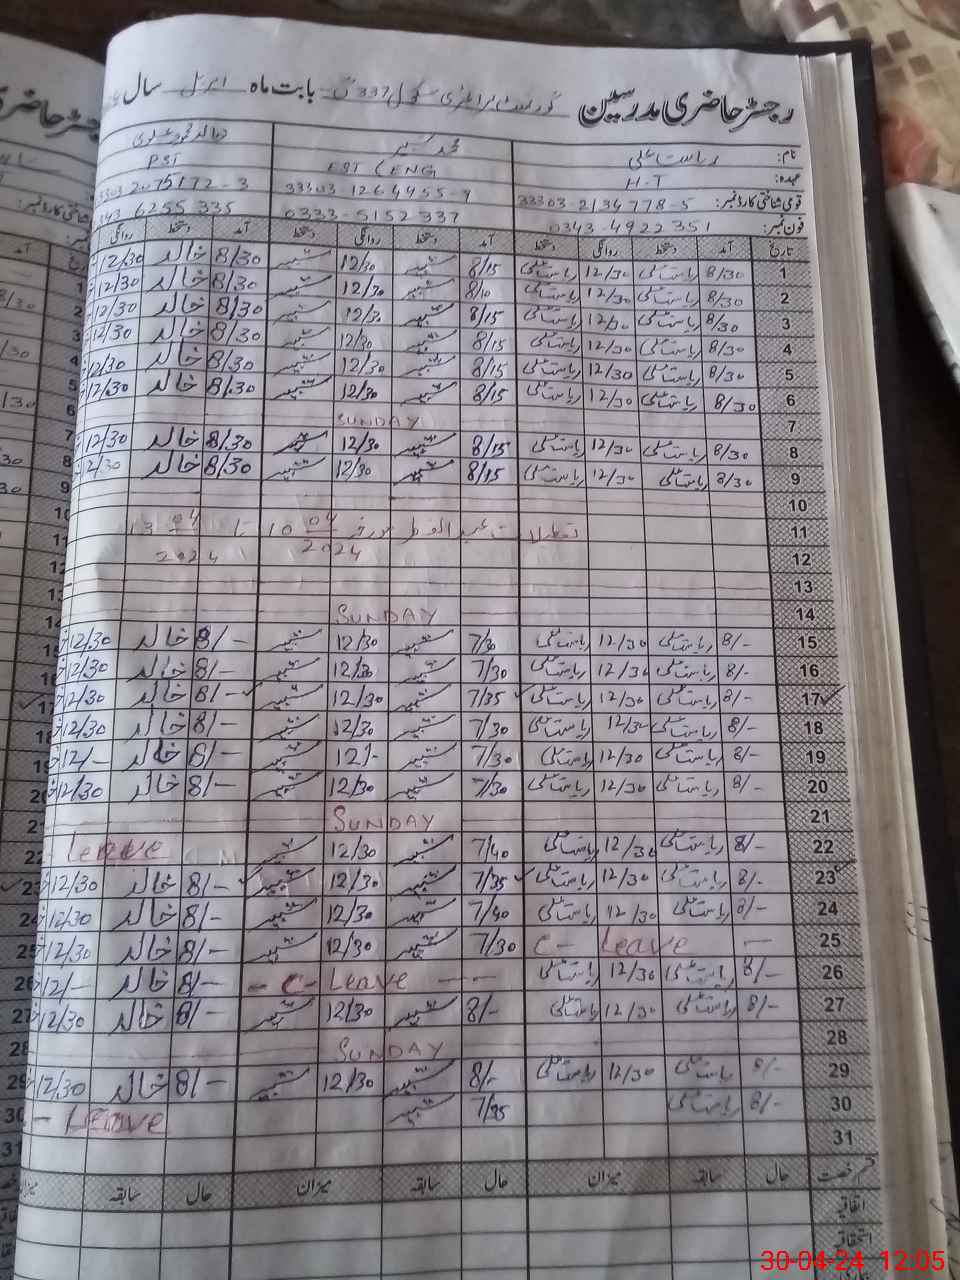 رجسٹر حاضری مدرسین گورنمنٹ پرائمری سکول 337 بابت ماہ اپریل سال
نام: ریاست علی محمد شبیر خالد محمود
عہدہ: H.T EST (ENG) PST
قومی شناختی کارڈ نمبر: 33303-2134778-5 33303-1264455-9 33303-2075172-3
فون نمبر: 0343-4922351 0333-5152337 343 6255335
تاریخ آمد دستخط روانگی دستخط آمد دستخط روانگی دستخط آمد دستخط روانگی
1 8/30 ریاست علی 12/30 ریاست علی 8/15 شبیر 12/30 شبیر 8/30 خالد 12/30
2 8/30 ریاست علی 12/30 ریاست علی 8/10 شبیر 12/30 شبیر 8/30 خالد 12/30
3 8/30 ریاست علی 12/30 ریاست علی 8/15 شبیر 12/30 شبیر 8/30 خالد 12/30
4 8/30 ریاست علی 12/30 ریاست علی 8/15 شبیر 12/30 شبیر 8/30 خالد 12/30
5 8/30 ریاست علی 12/30 ریاست علی 8/15 شبیر 12/30 شبیر 8/30 خالد 12/30
6 8/30 ریاست علی 12/30 ریاست علی 8/15 شبیر 12/30 شبیر 8/30 خالد 12/30
7 SUNDAY
8 8/30 ریاست علی 12/30 ریاست علی 8/15 شبیر 12/30 شبیر 8/30 خالد 12/30
9 8/30 ریاست علی 12/30 ریاست علی 8/15 شبیر 12/30 شبیر 8/30 خالد 12/30
10
11 تعطیلات عید الفطر مورخہ 10 04/2024 تا 13 04/2024
12
13
14 SUNDAY
15 8/- ریاست علی 12/30 ریاست علی 7/30 شبیر 12/30 شبیر 8/- خالد 12/30
16 8/- ریاست علی 12/30 ریاست علی 7/30 شبیر 12/30 شبیر 8/- خالد 12/30
17 ✓ 8/- ریاست علی 12/30 ریاست علی ✓ 7/35 شبیر 12/30 شبیر ✓ 8/- خالد 12/30
18 8/- ریاست علی 12/30 ریاست علی 7/30 شبیر 12/30 شبیر 8/- خالد 12/30
19 8/- ریاست علی 12/30 ریاست علی 7/30 شبیر 12/- شبیر 8/- خالد 12/-
20 8/- ریاست علی 12/30 ریاست علی 7/30 شبیر 12/30 شبیر 8/- خالد 12/30
21 SUNDAY
22 8/- ریاست علی 12/30 ریاست علی 7/40 شبیر 12/30 شبیر Leave
23 ✓ 8/- ریاست علی 12/30 ریاست علی ✓ 7/35 شبیر 12/30 شبیر ✓ 8/- خالد 12/30
24 8/- ریاست علی 12/30 ریاست علی 7/40 شبیر 12/30 شبیر 8/- خالد 12/30
25 C- Leave - 7/30 شبیر 12/30 شبیر 8/- خالد 12/30
26 8/- ریاست علی 12/30 ریاست علی - C- Leave - - 8/- خالد 12/-
27 8/- ریاست علی 12/30 ریاست علی 8/- شبیر 12/30 شبیر 8/- خالد 12/30
28 SUNDAY
29 8/- ریاست علی 12/30 ریاست علی 8/- شبیر 12/30 شبیر 8/- خالد 12/30
30 8/- ریاست علی 7/35 شبیر - Leave
31
قسم رخصت حال سابقہ میزان حال سابقہ میزان حال سابقہ میزان
اتفاقیہ
استحقاقیہ
30-04-24 12:05